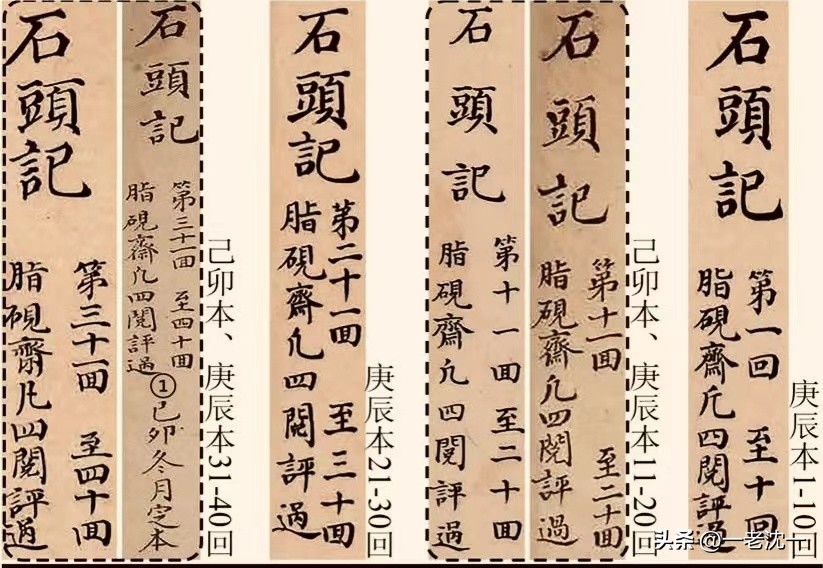 石頭記
第一回　至十回
脂硯齋凢四閱評過
庚辰本1-10回
石頭記
第十一囬　至二十囬
脂硯齋凢四閱評過
石頭記
第十一囬至二十囬
脂硯齋凢四閱評過
己卯本、庚辰本11-20回
石頭記
第二十一囬　至三十囬
脂硯齋凢四閱評過
庚辰本21-30回
石頭記
第三十一囬　至四十囬
脂硯齋凢四閱評過
①己卯冬月定本
石頭記
第三十一囬　至四十囬
脂硯齋凡四閱評過
己卯本、庚辰本31-40回
头条 @一老沈一